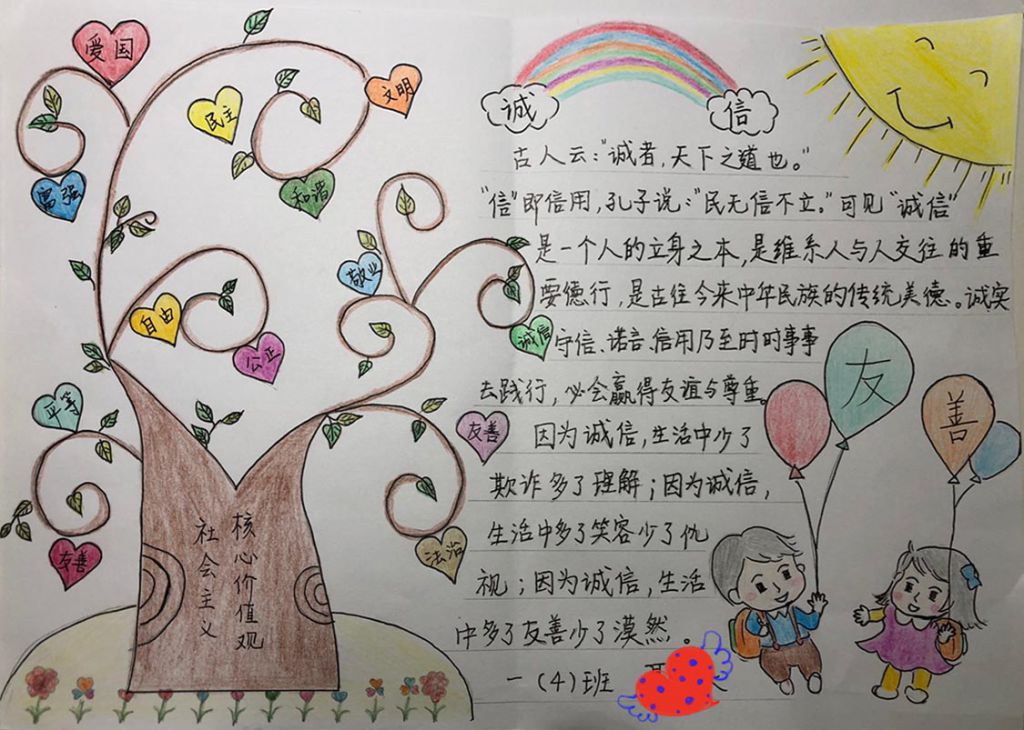 爱国
文明
民主
富强
和谐
敬业
自由
诚信
公正
平等
友善
法治
友善
社会主义
核心价值观
诚
信
古人云:“诚者,天下之道也。”
“信”即信用,孔子说:“民无信不立。”可见“诚信”
是一个人的立身之本,是维系人与人交往的重
要德行,是古往今来中华民族的传统美德。诚实
守信、诺言、信用乃至时时事事
去践行,必会赢得友谊与尊重。
因为诚信,生活中少了
欺诈多了理解;因为诚信,
生活中多了笑容少了仇
视;因为诚信,生活
中多了友善少了漠然。
一(4)班
友
善